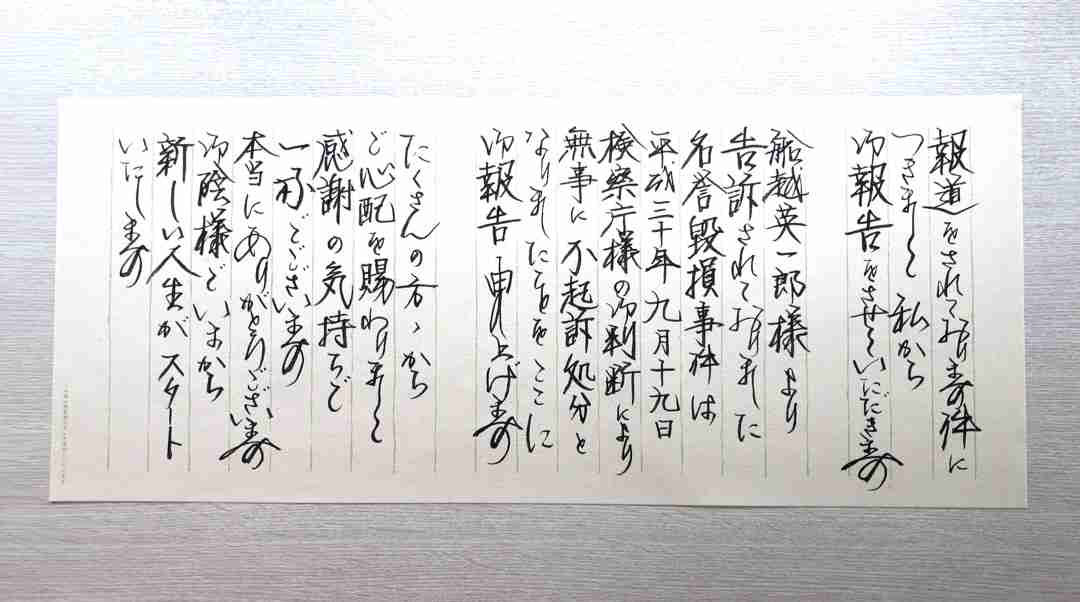 報道をされております件に
つきまして私から
御報告をさせていただきます
船越英一郎様より
告訴されておりました
名誉毀損事件は
平成三十年九月十九日
検察庁様の御判断により
無事に不起訴処分と
なりましたことをここに
御報告申し上げます
たくさんの方々から
ご心配を賜わりまして
感謝の気持ちで
一杯でございます
本当にありがとうございます
御陰様でいまから
新しい人生がスタート
いたします